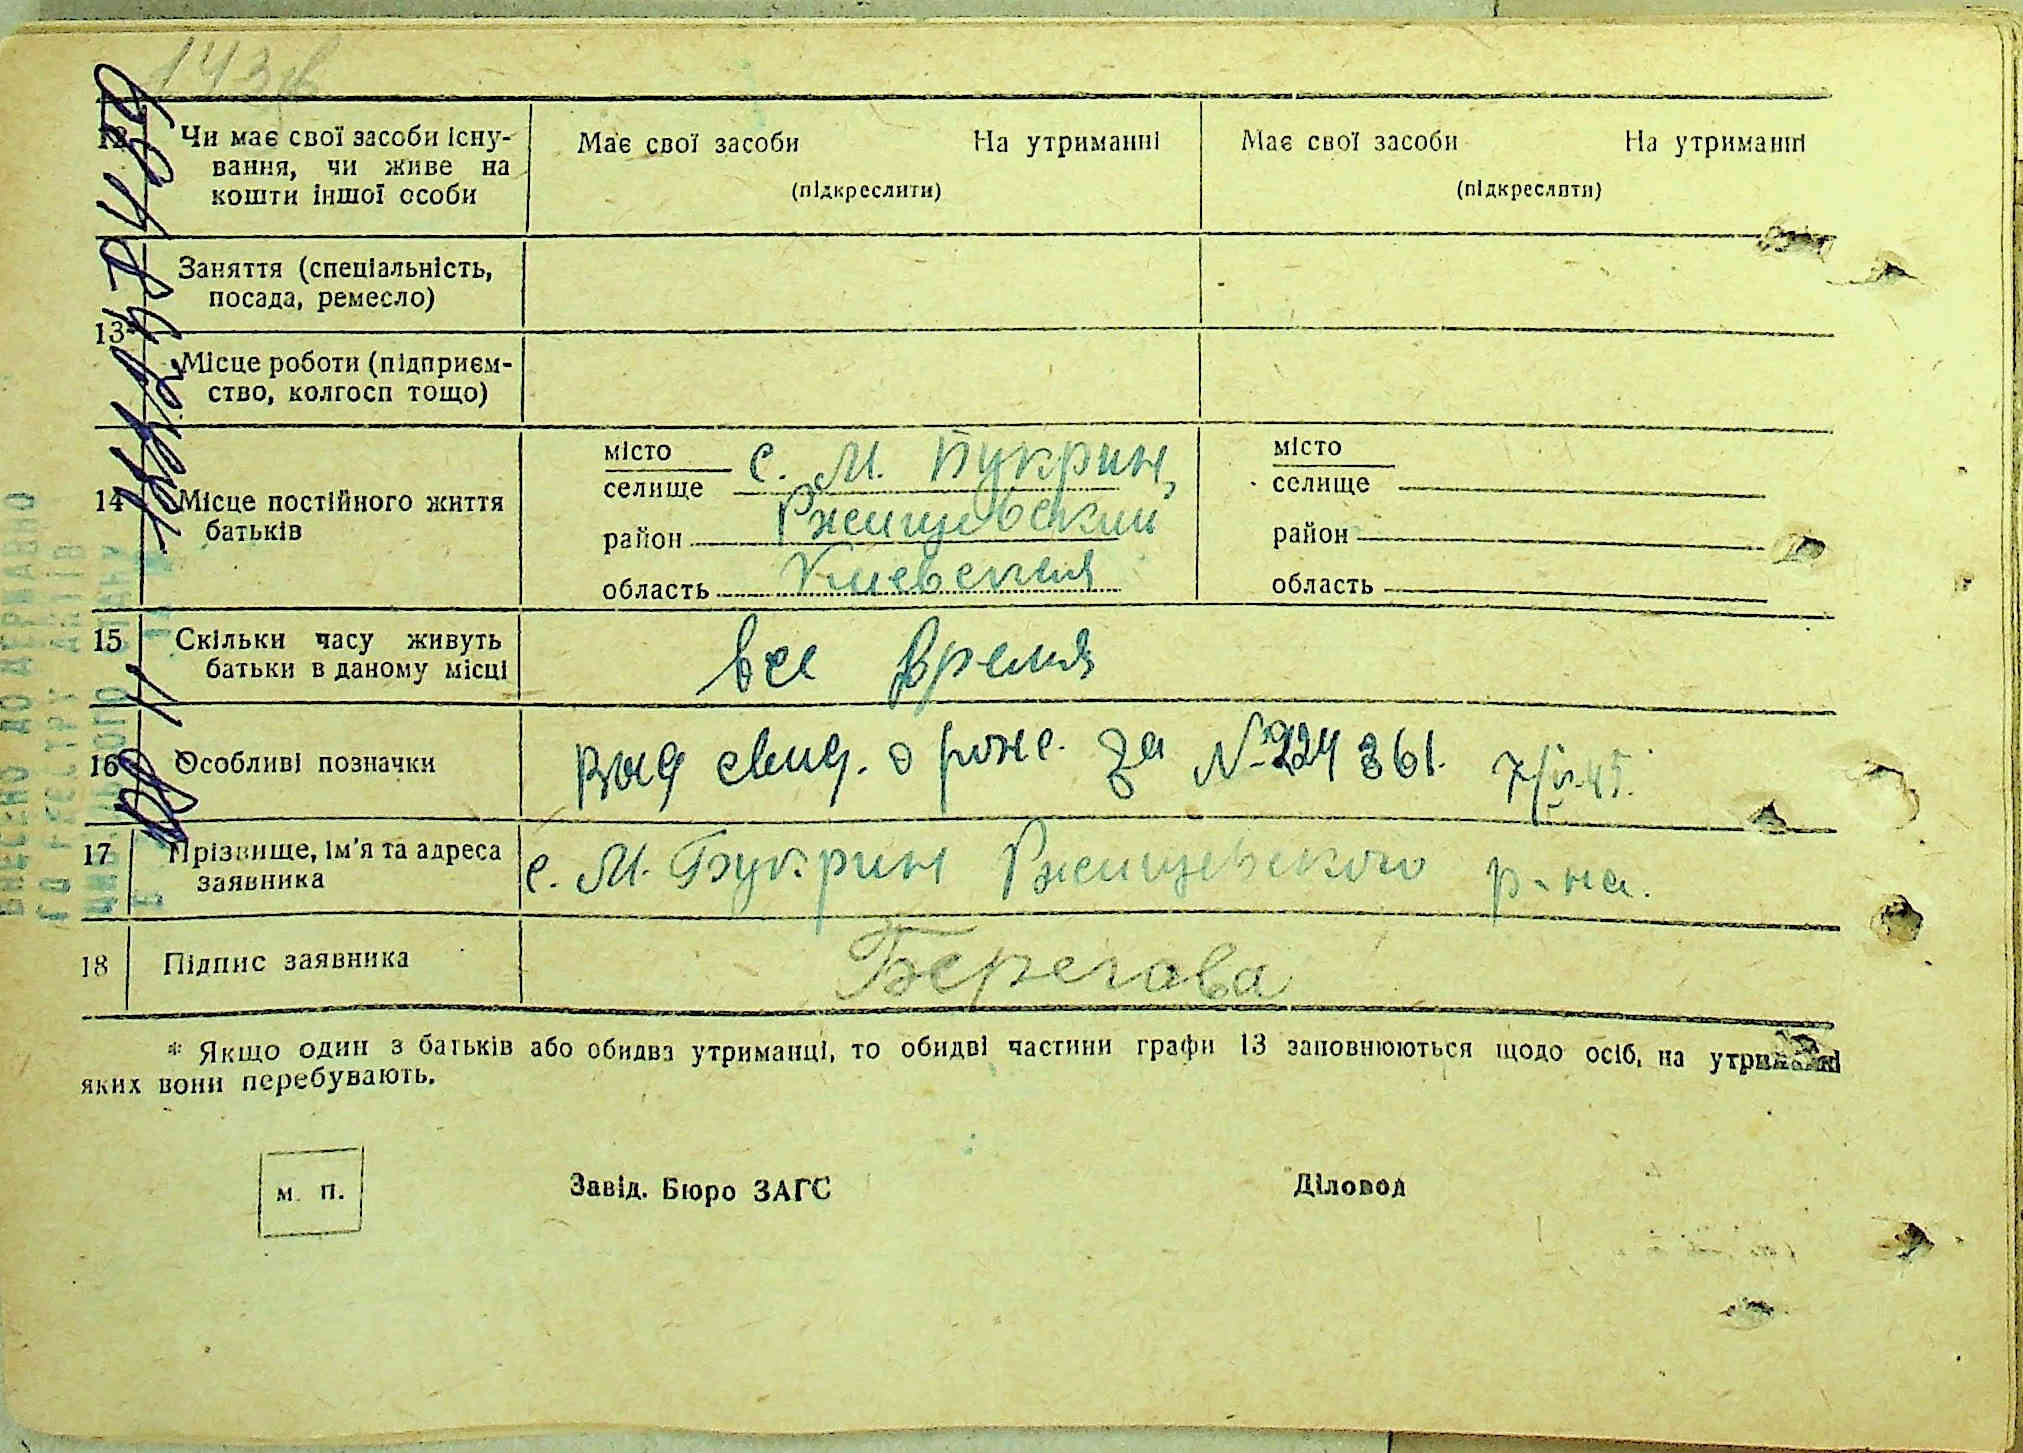 143 зв
12 Чи має свої засоби існу-
вання, чи живе на
кошти іншої особи
Має свої засоби На утриманні
(підкреслити)
Має свої засоби На утриманні
(підкреслити)
13* Заняття (спеціальність,
посада, ремесло)
Місце роботи (підприєм-
ство, колгосп тощо)
14 Місце постійного життя
батьків
місто
селище с. М. Букрин,
район Ржищевский
область Киевская
місто
селище
район
область
15 Скільки часу живуть
батьки в даному місці
все время
16 Особливі позначки
Выд свид. о рожд. за № 224361. 7/ 45.
17 Прізвище, ім'я та адреса
заявника
с. М. Букрин Ржищевского р-на.
18 Підпис заявника
Берегова
* Якщо один з батьків або обидва утриманці, то обидві частини графи 13 заповнюються щодо осіб, на утриманні
яких вони перебувають.
М. П.
Завід. Бюро ЗАГС
Діловод
ВНЕСЕНО ДО ДЕРЖАВНО
ГО РЕЄСТРУ АКТІВ
ЦИВІЛЬНОГО СТАНУ